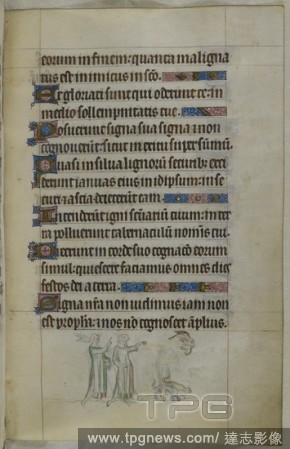 eorum in finem: quanta maligna
tus est inimicus in sco.
Et gloriati sunt qui oderunt te: in
medio sollempnitatis tue.
Posuerunt signa sua signa: & non
cognouerunt: sicut in exitu super sumū.
Quasi in silua lignorū securib: exci
derunt ianuas eius in idipsum: in se
curi & ascia deiecerunt eam.
Incenderūt igni scuariū tuum: in ter
ra polluerunt tabernaculū nominis tui.
Dixerunt in corde suo cognaco eorum
simul: quiescere faciamus omnes dies
festos dei a terra.
Signa nr̄a non uidimus iam non
est propha: & nos nō cognoscet ampliꝰ.
TPG
www.tpgnews.com/ 達志影像